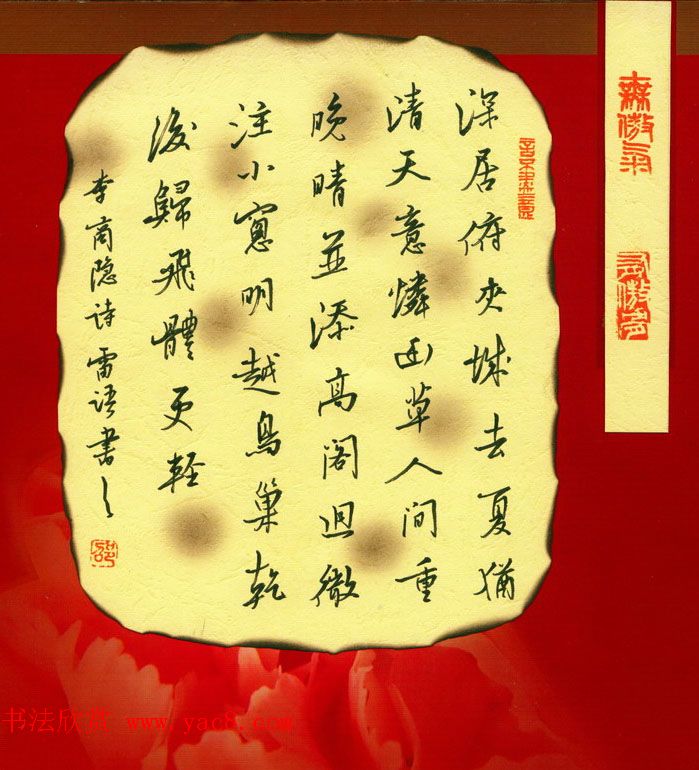 深居俯夾城去夏猶
清天意憐幽草人間重
晚晴並添高閣迥微
注小窗明越鳥巢乾
後歸飛體更輕
李商隐诗雷语書之
無傲氣
书法欣赏 www.yac8.com